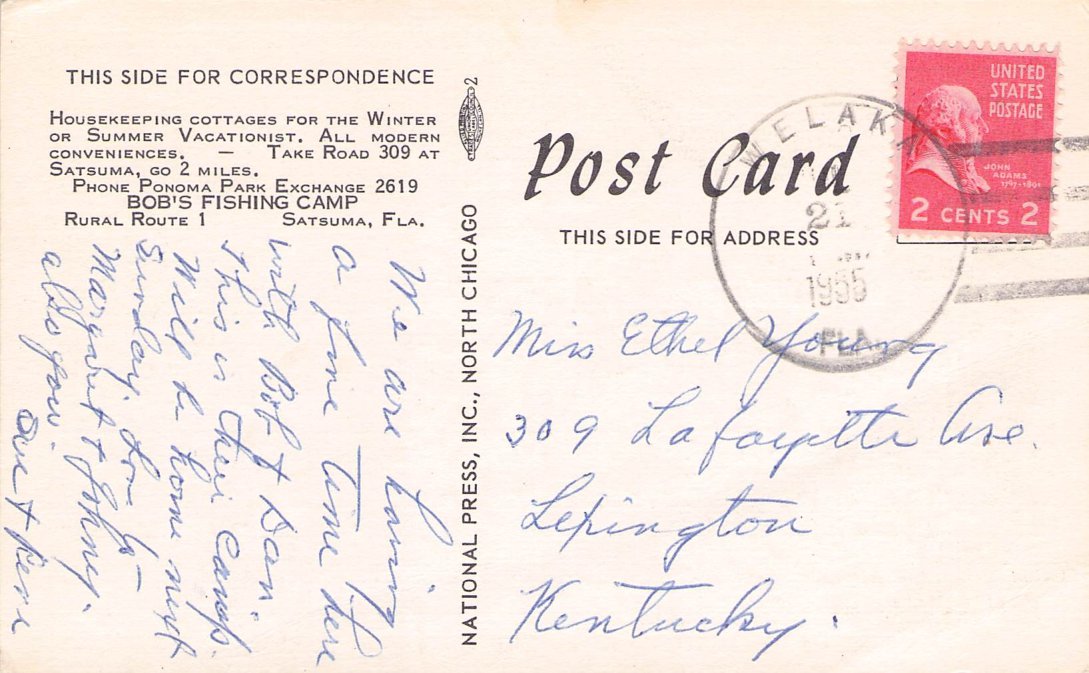 THIS SIDE FOR CORRESPONDENCE
HOUSEKEEPING COTTAGES FOR THE WINTER
OR SUMMER VACATIONIST. ALL MODERN
CONVENIENCES. — TAKE ROAD 309 AT
SATSUMA, GO 2 MILES.
PHONE PONOMA PARK EXCHANGE 2619
BOB'S FISHING CAMP
RURAL ROUTE 1 SATSUMA, FLA.
We are having
a fine time here
with Bob + Dan.
This is their camp.
Will be home next
Sunday.
Margaret + Johney.
also you
NATIONAL PRESS, INC., NORTH CHICAGO
2
Post Card
THIS SIDE FOR ADDRESS
WELAKA
21
1955
FLA
UNITED
STATES
POSTAGE
JOHN
ADAMS
1797-1801
2 CENTS 2
Miss Ethel Young
309 Lafayette Ave.
Lexington
Kentucky.